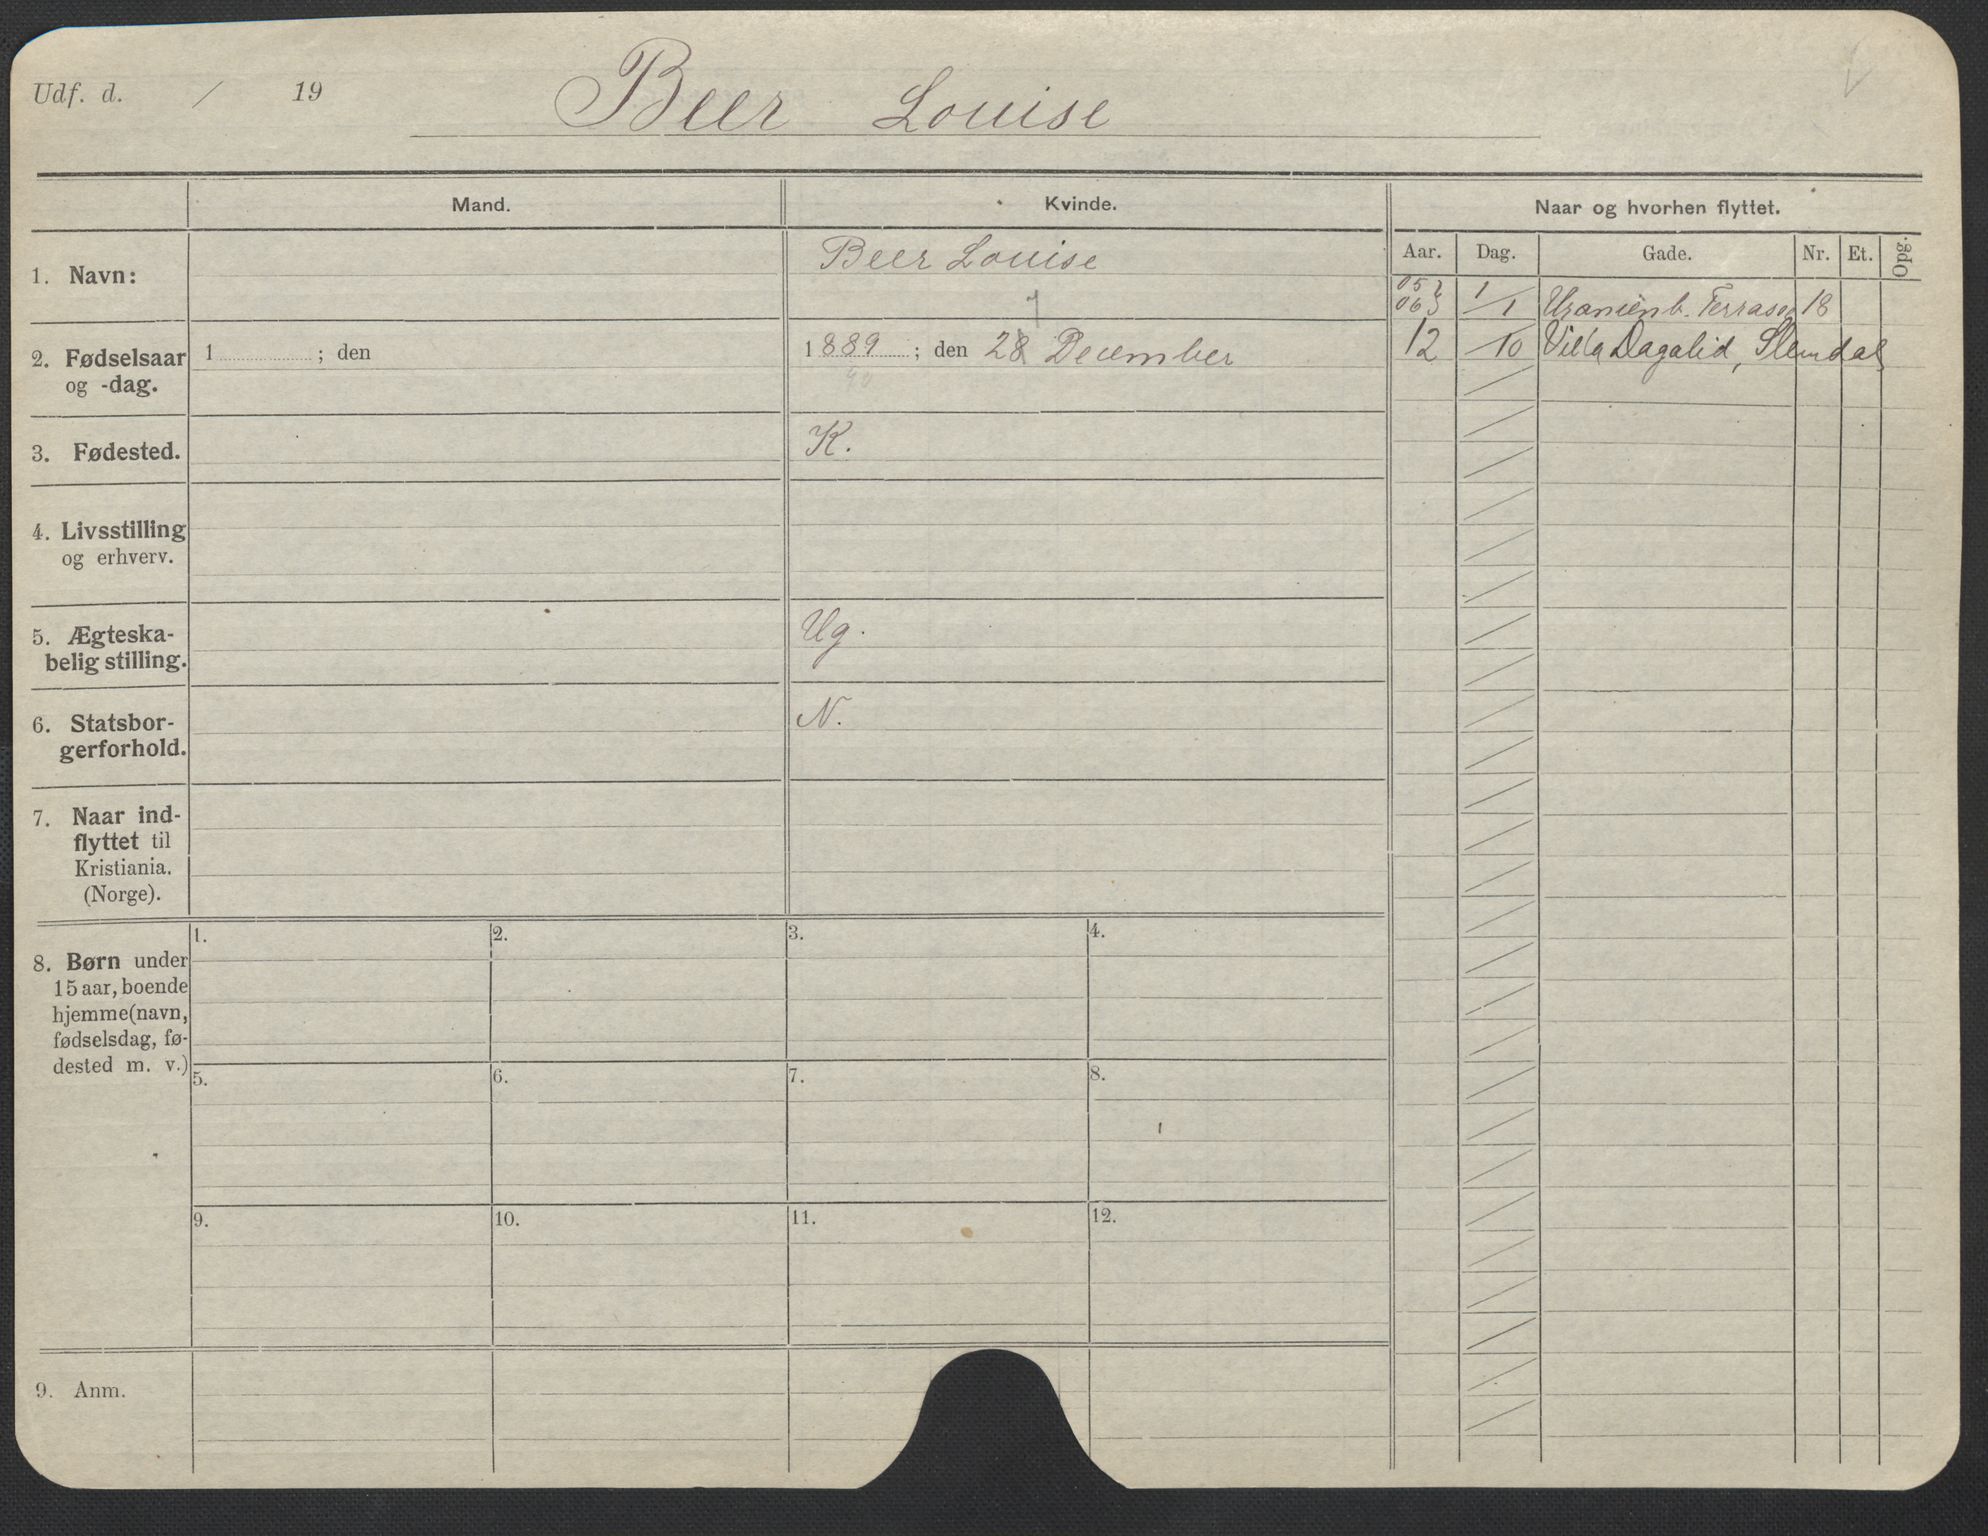 Udf. d. / 19
Beer Louise
Mand.
Kvinde.
Naar og hvorhen flyttet.
Aar. Dag. Gade. Nr. Et. Opg.
1. Navn:
Beer Louise
05
06 1/1 Uranienb. Terrasse 18
12 /10 Villa Dagalid, Slemdal
2. Fødselsaar
og -dag.
1 ; den
7
1889 ; den 28 December
90
3. Fødested.
K.
4. Livsstilling
og erhverv.
5. Ægteska-
belig stilling.
Ug.
6. Statsbor-
gerforhold.
N.
7. Naar ind-
flyttet til
Kristiania.
(Norge).
8. Børn under
15 aar, boende
hjemme (navn,
fødselsdag, fø-
dested m. v.)
1. 2. 3. 4.
5. 6. 7. 8.
9. 10. 11. 12.
9. Anm.